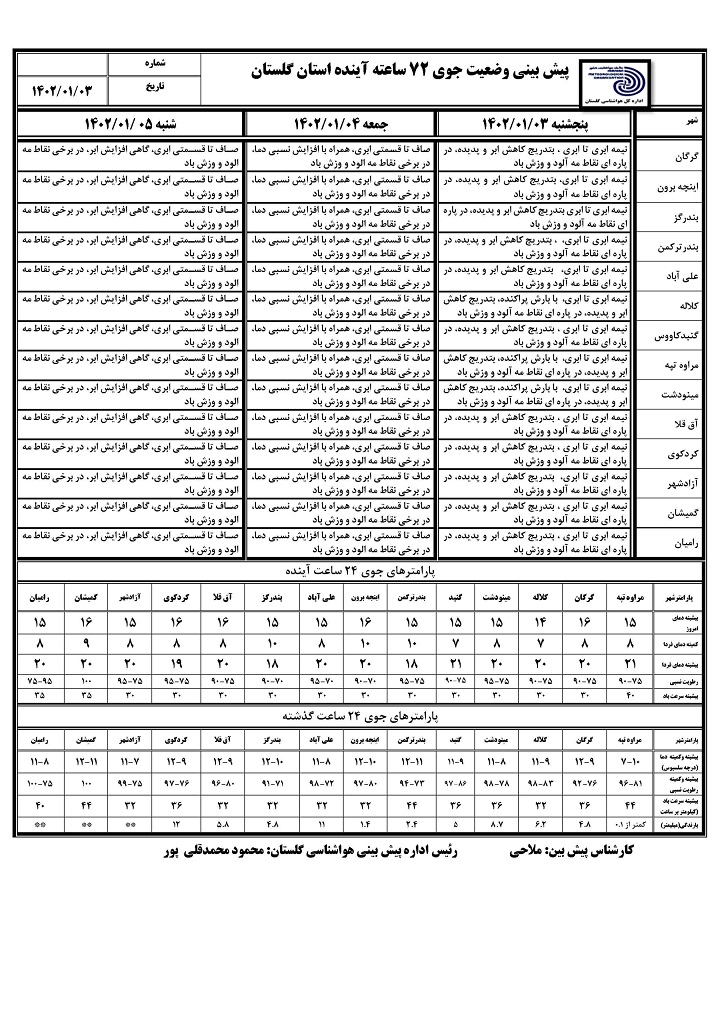 پیش بینی وضعیت جوی ۷۲ ساعته آینده استان گلستان
اداره کل هواشناسی گلستان
شماره
تاریخ
۱۴۰۲/۰۱/۰۳
شهر پنجشنبه ۱۴۰۲/۰۱/۰۳ جمعه ۱۴۰۲/۰۱/۰۴ شنبه ۰۵ /۱۴۰۲/۰۱
گرگان نیمه ابری تا ابری ، بتدریج کاهش ابر و پدیده، در صاف تا قسمتی ابری، همراه با افزایش نسبی دما، صاف تا قسمتی ابری، گاهی افزایش ابر، در برخی نقاط مه
پاره ای نقاط مه آلود و وزش باد در برخی نقاط مه الود و وزش باد الود و وزش باد
اینچه برون نیمه ابری تا ابری، بتدریج کاهش ابر و پدیده، در صاف تا قسمتی ابری، همراه با افزایش نسبی دما، صاف تا قسمتی ابری، گاهی افزایش ابر، در برخی نقاط مه
پاره ای نقاط مه آلود و وزش باد در برخی نقاط مه الود و وزش باد الود و وزش باد
بندرگز نیمه ابری تا ابری بتدریج کاهش ابر و پدیده، در پاره صاف تا قسمتی ابری، همراه با افزایش نسبی دما، صاف تا قسمتی ابری، گاهی افزایش ابر، در برخی نقاط مه
ای نقاط مه آلود و وزش باد در برخی نقاط مه الود و وزش باد الود و وزش باد
بندرترکمن نیمه ابری تا ابری، ، بتدریج کاهش ابر و پدیده، در صاف تا قسمتی ابری، همراه با افزایش نسبی دما، صاف تا قسمتی ابری، گاهی افزایش ابر، در برخی نقاط مه
پاره ای نقاط مه آلود و وزش باد در برخی نقاط مه الود و وزش باد الود و وزش باد
علی آباد نیمه ابری تا ابری، بتدریج کاهش ابر و پدیده، در صاف تا قسمتی ابری، همراه با افزایش نسبی دما، صاف تا قسمتی ابری، گاهی افزایش ابر، در برخی نقاط مه
پاره ای نقاط مه آلود و وزش باد در برخی نقاط مه الود و وزش باد الود و وزش باد
کلاله نیمه ابری تا ابری، با بارش پراکنده، بتدریج کاهش صاف تا قسمتی ابری، همراه با افزایش نسبی دما، صاف تا قسمتی ابری، گاهی افزایش ابر، در برخی نقاط مه
ابر و پدیده، در پاره ای نقاط مه آلود و وزش باد در برخی نقاط مه الود و وزش باد الود و وزش باد
گنبدکاووس نیمه ابری تا ابری ، بتدریج کاهش ابر و پدیده، در صاف تا قسمتی ابری، همراه با افزایش نسبی دما، صاف تا قسمتی ابری، گاهی افزایش ابر، در برخی نقاط مه
پاره ای نقاط مه آلود و وزش باد در برخی نقاط مه الود و وزش باد الود و وزش باد
مراوه تپه نیمه ابری تا ابری، با بارش پراکنده، بتدریج کاهش صاف تا قسمتی ابری، همراه با افزایش نسبی دما، صاف تا قسمتی ابری، گاهی افزایش ابر، در برخی نقاط مه
ابر و پدیده، در پاره ای نقاط مه آلود و وزش باد در برخی نقاط مه الود و وزش باد الود و وزش باد
مینودشت نیمه ابری تا ابری، با بارش پراکنده، بتدریج کاهش صاف تا قسمتی ابری، همراه با افزایش نسبی دما، صاف تا قسمتی ابری، گاهی افزایش ابر، در برخی نقاط مه
ابر و پدیده، در پاره ای نقاط مه آلود و وزش باد در برخی نقاط مه الود و وزش باد الود و وزش باد
آق قلا نیمه ابری تا ابری ، بتدریج کاهش ابر و پدیده، در صاف تا قسمتی ابری، همراه با افزایش نسبی دما، صاف تا قسمتی ابری، گاهی افزایش ابر، در برخی نقاط مه
پاره ای نقاط مه آلود و وزش باد در برخی نقاط مه الود و وزش باد الود و وزش باد
کردکوی نیمه ابری تا ابری ، بتدریج کاهش ابر و پدیده، در صاف تا قسمتی ابری، همراه با افزایش نسبی دما، صاف تا قسمتی ابری، گاهی افزایش ابر، در برخی نقاط مه
پاره ای نقاط مه آلود و وزش باد در برخی نقاط مه الود و وزش باد الود و وزش باد
آزادشهر نیمه ابری تا ابری ، بتدریج کاهش ابر و پدیده، در صاف تا قسمتی ابری، همراه با افزایش نسبی دما، صاف تا قسمتی ابری، گاهی افزایش ابر، در برخی نقاط مه
پاره ای نقاط مه آلود و وزش باد در برخی نقاط مه الود و وزش باد الود و وزش باد
گمیشان نیمه ابری تا ابری ، بتدریج کاهش ابر و پدیده، در صاف تا قسمتی ابری، همراه با افزایش نسبی دما، صاف تا قسمتی ابری، گاهی افزایش ابر، در برخی نقاط مه
پاره ای نقاط مه آلود و وزش باد در برخی نقاط مه الود و وزش باد الود و وزش باد
رامیان نیمه ابری تا ابری ، بتدریج کاهش ابر و پدیده، در صاف تا قسمتی ابری، همراه با افزایش نسبی دما، صاف تا قسمتی ابری، گاهی افزایش ابر، در برخی نقاط مه
پاره ای نقاط مه آلود و وزش باد در برخی نقاط مه الود و وزش باد الود و وزش باد
پارامترهای جوی ۲۴ ساعت آینده
پارامترشهر مراوه تپه گرگان کلاله مینودشت گنبد بندرترکمن اینچه برون علی آباد بندرگز آق قلا کردکوی آزادشهر گمیشان رامیان
بیشینه دمای امروز ۱۵ ۱۶ ۱۴ ۱۵ ۱۵ ۱۵ ۱۶ ۱۵ ۱۵ ۱۶ ۱۶ ۱۵ ۱۶ ۱۵
کمینه دمای فردا ۸ ۸ ۷ ۸ ۷ ۱۰ ۱۰ ۸ ۱۰ ۸ ۸ ۸ ۹ ۸
بیشینه دمای فردا ۲۱ ۲۰ ۲۰ ۲۰ ۲۱ ۱۸ ۲۰ ۲۰ ۱۸ ۲۰ ۱۹ ۲۰ ۲۰ ۲۰
رطوبت نسبی ۹۰-۷۵ ۹۰-۷۵ ۹۰-۷۵ ۹۵-۷۵ ۹۰-۷۵ ۹۵-۷۵ ۹۰-۷۰ ۹۵-۷۰ ۹۰-۷۰ ۹۵-۷۵ ۹۰-۷۵ ۹۵-۷۵ ۱۰۰ ۷۵-۹۵
بیشینه سرعت باد ۴۰ ۳۰ ۳۰ ۳۰ ۳۰ ۳۰ ۳۰ ۳۰ ۳۰ ۳۰ ۳۰ ۳۰ ۳۵ ۳۵
پارامترهای جوی ۲۴ ساعت گذشته
پارامترشهر مراوه تپه گرگان کلاله مینودشت گنبد بندرترکمن اینچه برون علی آباد بندرگز آق قلا کردکوی آزادشهر گمیشان رامیان
بیشینه وکمینه دما (درجه سلسیوس) ۷-۱۰ ۱۲-۹ ۱۱-۹ ۱۱-۸ ۱۱-۹ ۱۲-۱۱ ۱۲-۱۰ ۱۱-۸ ۱۲-۱۰ ۱۲-۹ ۱۲-۹ ۱۱-۷ ۱۲-۱۱ ۱۱-۸
بیشینه وکمینه رطوبت نسبی ۹۶-۸۱ ۹۲-۷۶ ۹۸-۸۳ ۹۸-۷۸ ۹۷-۸۶ ۹۴-۷۳ ۹۷-۸۰ ۹۸-۷۲ ۹۱-۷۱ ۹۶-۸۰ ۹۷-۷۶ ۹۹-۷۵ ۱۰۰ ۱۰۰-۷۵
بیشینه سرعت باد (کیلومتر بر ساعت ۴۴ ۳۶ ۳۲ ۳۶ ۳۶ ۴۴ ۳۲ ۳۲ ۳۲ ۳۲ ۳۶ ۳۲ ۴۴ ۴۰
بارندگی(میلیمتر) کمتر از ۰.۱ ۴.۸ ۶.۲ ۸.۷ ۵ ۲.۴ ۱.۴ ۱۱ ۴.۸ ۵.۸ ۱۲ ** ** **
کارشناس پیش بین: ملاحی رئیس اداره پیش بینی هواشناسی گلستان: محمود محمدقلی پور